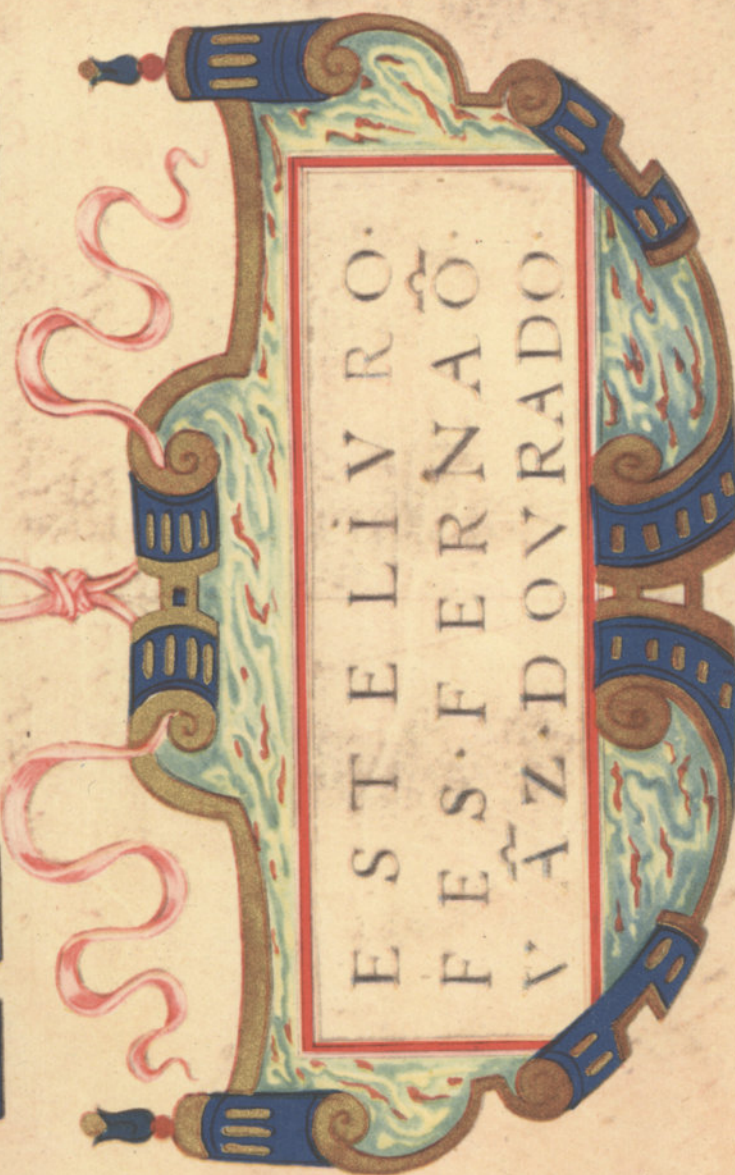 ESTE LİVRO·
FES·FERNAÕ·
VÂZ·DOVRADO·